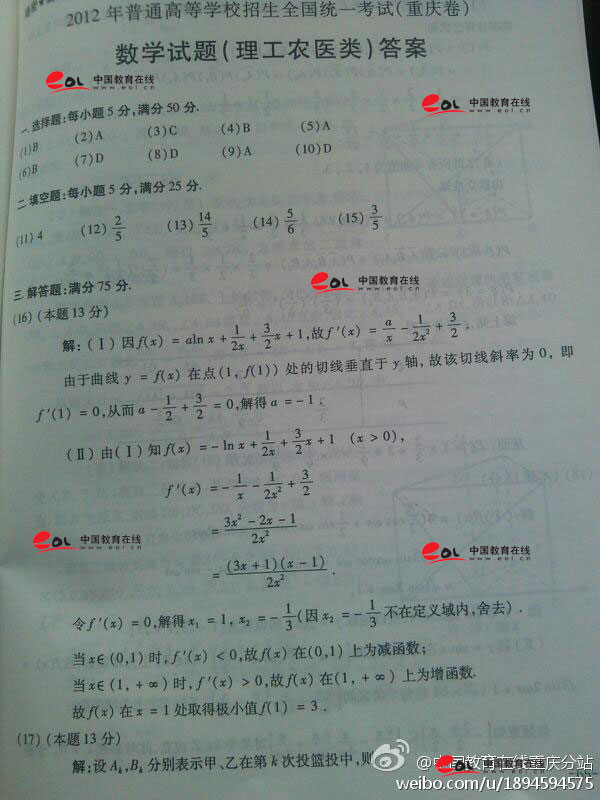 2012年普通高等学校招生全国统一考试(重庆卷)
数学试题(理工农医类)答案
eol 中国教育在线
www.eol.cn
eol 中国教育在线
www.eol.cn
一.选择题:每小题5分,满分50分.
(1)B (2)A (3)C (4)B (5)A
(6)B (7)D (8)D (9)A (10)D
二.填空题:每小题5分,满分25分.
(11) 4 (12) 2/5 (13) 14/5 (14) 5/6 (15) 3/5
eol 中国教育在线
www.eol.cn
三.解答题:满分75分.
(16)(本题13分)
解:(Ⅰ)因f(x) = aln x + 1/2x + 3/2 x + 1,故f′(x) = a/x - 1/2x² + 3/2.
由于曲线 y = f(x) 在点(1, f(1)) 处的切线垂直于 y 轴, 故该切线斜率为 0, 即
f′(1) = 0,从而 a - 1/2 + 3/2 = 0,解得 a = -1.
(Ⅱ)由(Ⅰ)知f(x) = -ln x + 1/2x + 3/2 x + 1 (x > 0),
f′(x) = -1/x - 1/2x² + 3/2
= 3x² - 2x - 1/2x²
eol 中国教育在线
www.eol.cn
eol 中国教育在线
www.eol.cn
= (3x + 1)(x - 1)/2x².
令f′(x) = 0,解得x₁ = 1, x₂ = -1/3(因x₂ = -1/3 不在定义域内,舍去).
当x∈(0,1) 时, f′(x) < 0,故f(x) 在(0,1) 上为减函数;
当x∈(1, +∞) 时, f′(x) > 0,故f(x) 在(1, +∞) 上为增函数.
故f(x) 在 x = 1 处取得极小值f(1) = 3.
(17)(本题13分)
解:设 Aₖ,Bₖ 分别表示甲、乙在第 k 次投篮投中, 则
@中国教育在线重庆分站
eol 中国教育在线
weibo.com/u/1894594575